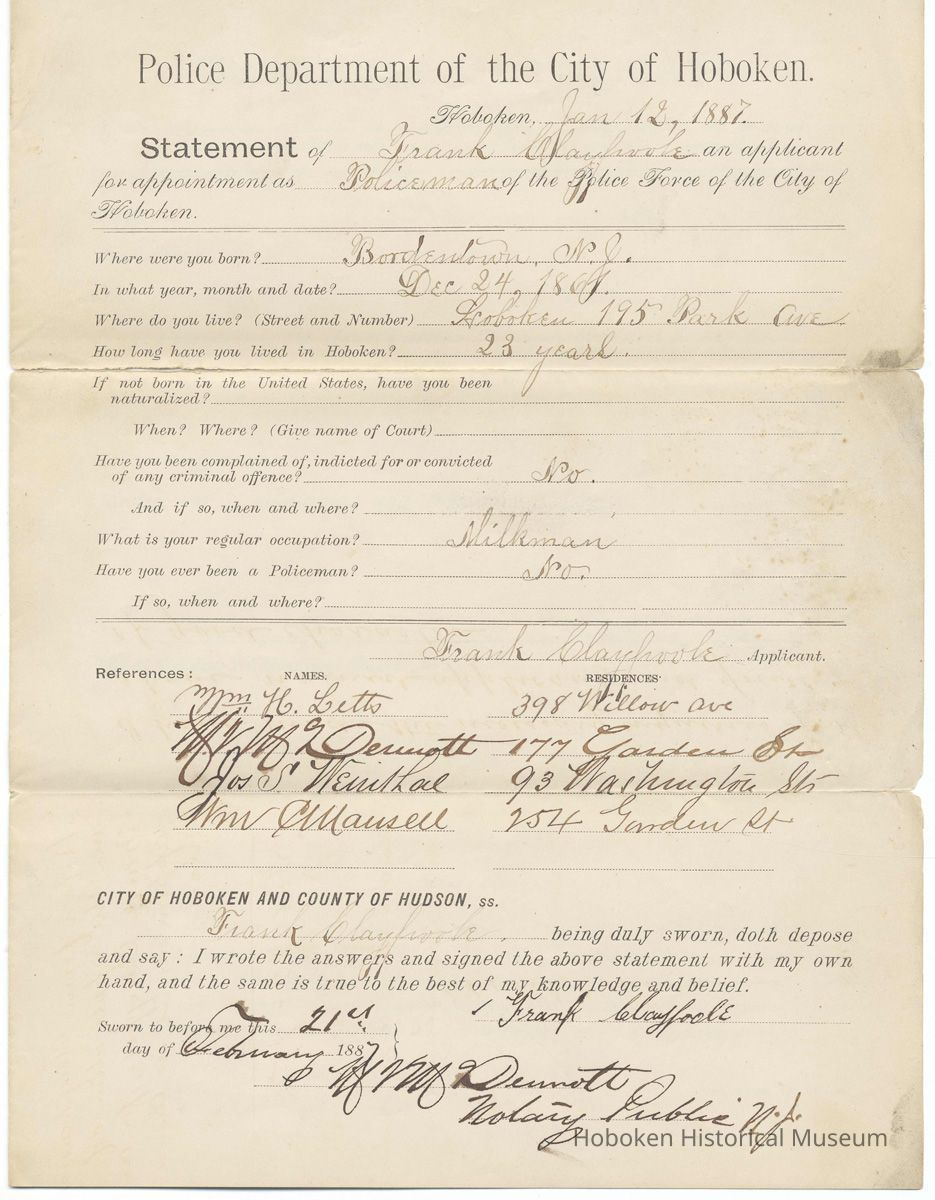 Police Department of the City of Hoboken.
Hoboken, Jan 12, 1887.
Statement of Frank Claypoole an applicant
for appointment as Policeman of the Police Force of the City of
Hoboken.
Where were you born? Bordentown, N.J.
In what year, month and date? Dec 24, 1861.
Where do you live? (Street and Number) Hoboken 195 Park Ave
How long have you lived in Hoboken? 23 years.
If not born in the United States, have you been
naturalized?
When? Where? (Give name of Court)
Have you been complained of, indicted for or convicted
of any criminal offence? No.
And if so, when and where?
What is your regular occupation? Milkman
Have you ever been a Policeman? No.
If so, when and where?
Frank Claypoole Applicant.
References: NAMES. RESIDENCES
Wm. H. Letts 398 Willow ave
McDermott 177 Garden St
Jos S Weinthal 93 Washington St
Wm C Mansell 254 Garden St
CITY OF HOBOKEN AND COUNTY OF HUDSON, ss.
Frank Claypoole, being duly sworn, doth depose
and say: I wrote the answers and signed the above statement with my own
hand, and the same is true to the best of my knowledge and belief.
Frank Claypoole
Sworn to before me this 21st
day of February 1887
McDermott
Notary Public N.J.
Hoboken Historical Museum